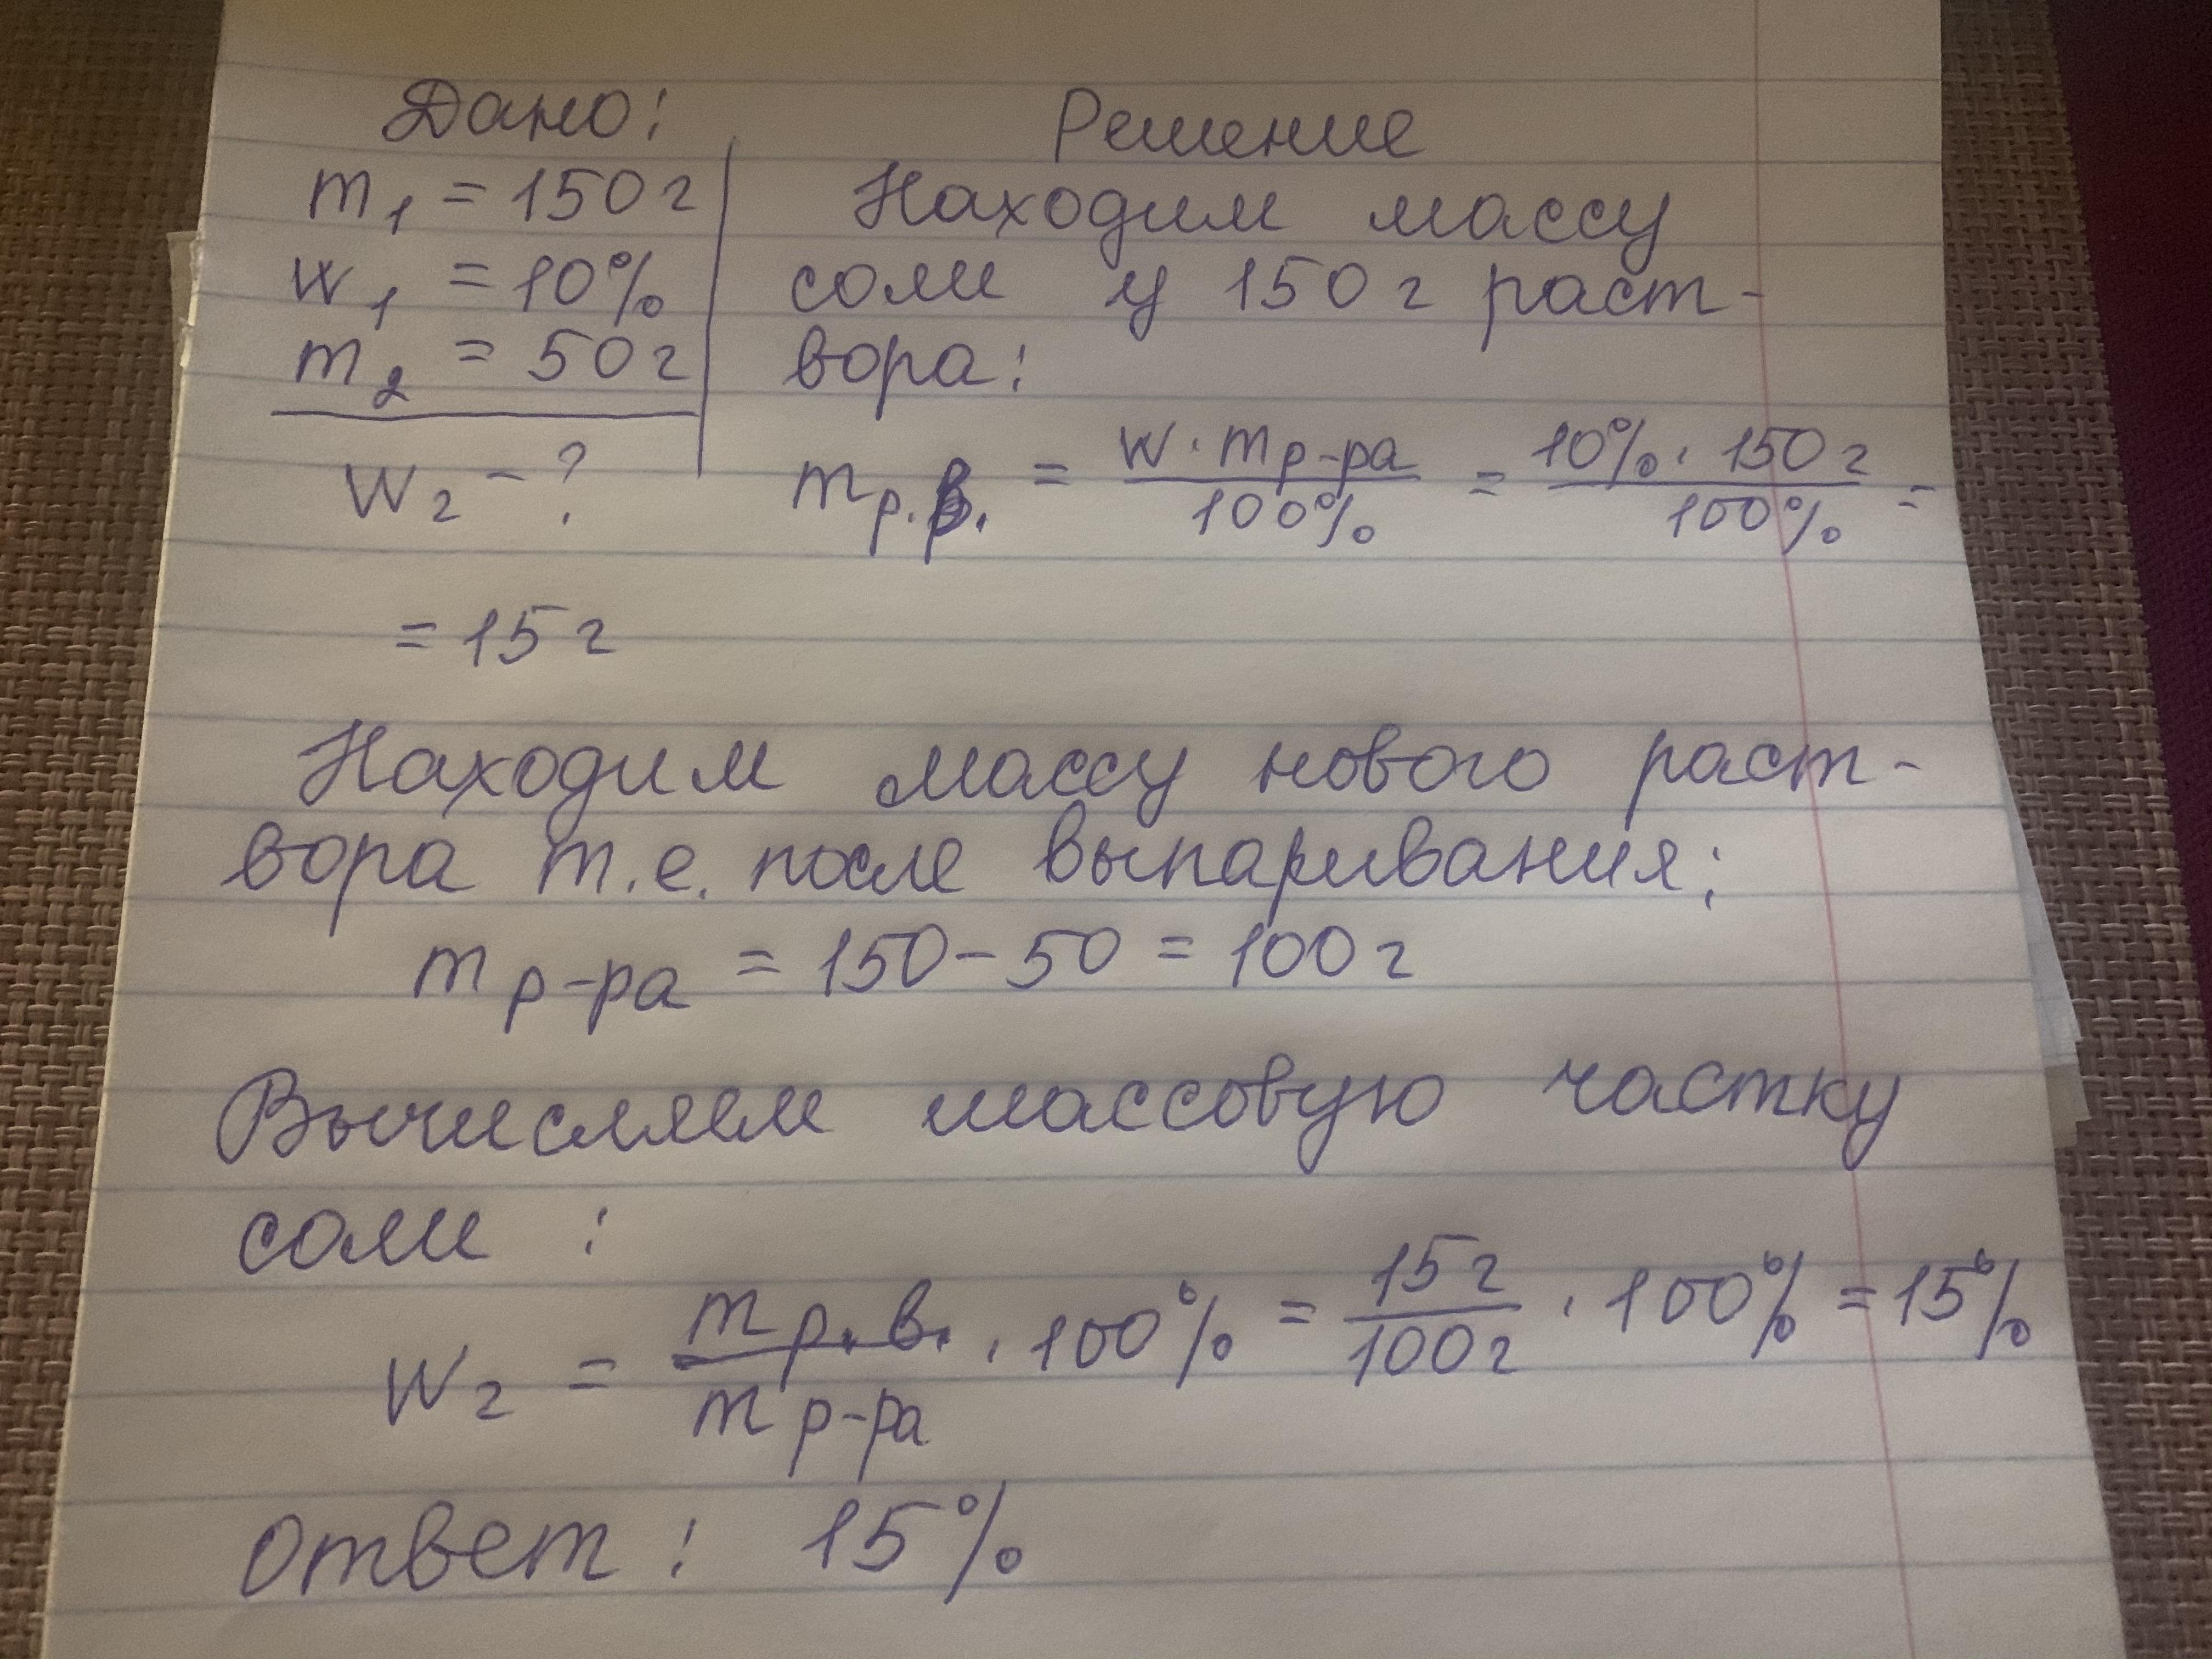 Дано:
m₁ = 150 г
w₁ = 10%
m₂ = 50 г
w₂ - ?
Решение
Находим массу
соли у 150 г раст-
вора:
m р.в. = w · m р-ра / 100% = 10% · 150 г / 100% =
= 15 г
Находим массу нового раст-
вора т.е. после выпаривания:
m р-ра = 150 - 50 = 100 г
Вычисляем массовую частку
соли :
w₂ = m р.в. / m р-ра · 100% = 15 г / 100 г · 100% = 15%
Ответ : 15%